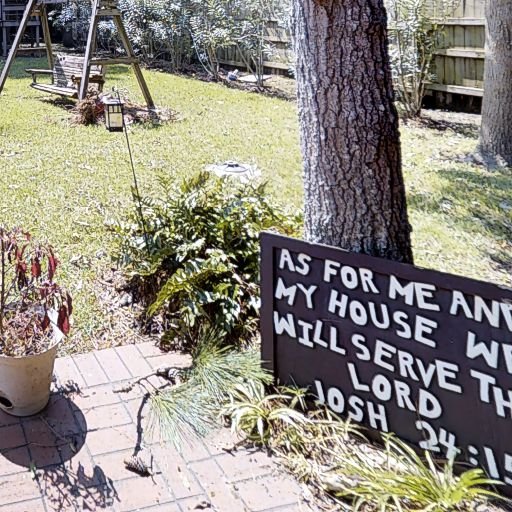 AS FOR ME AND
MY HOUSE WE
WILL SERVE TH
LORD
JOSH 24:15